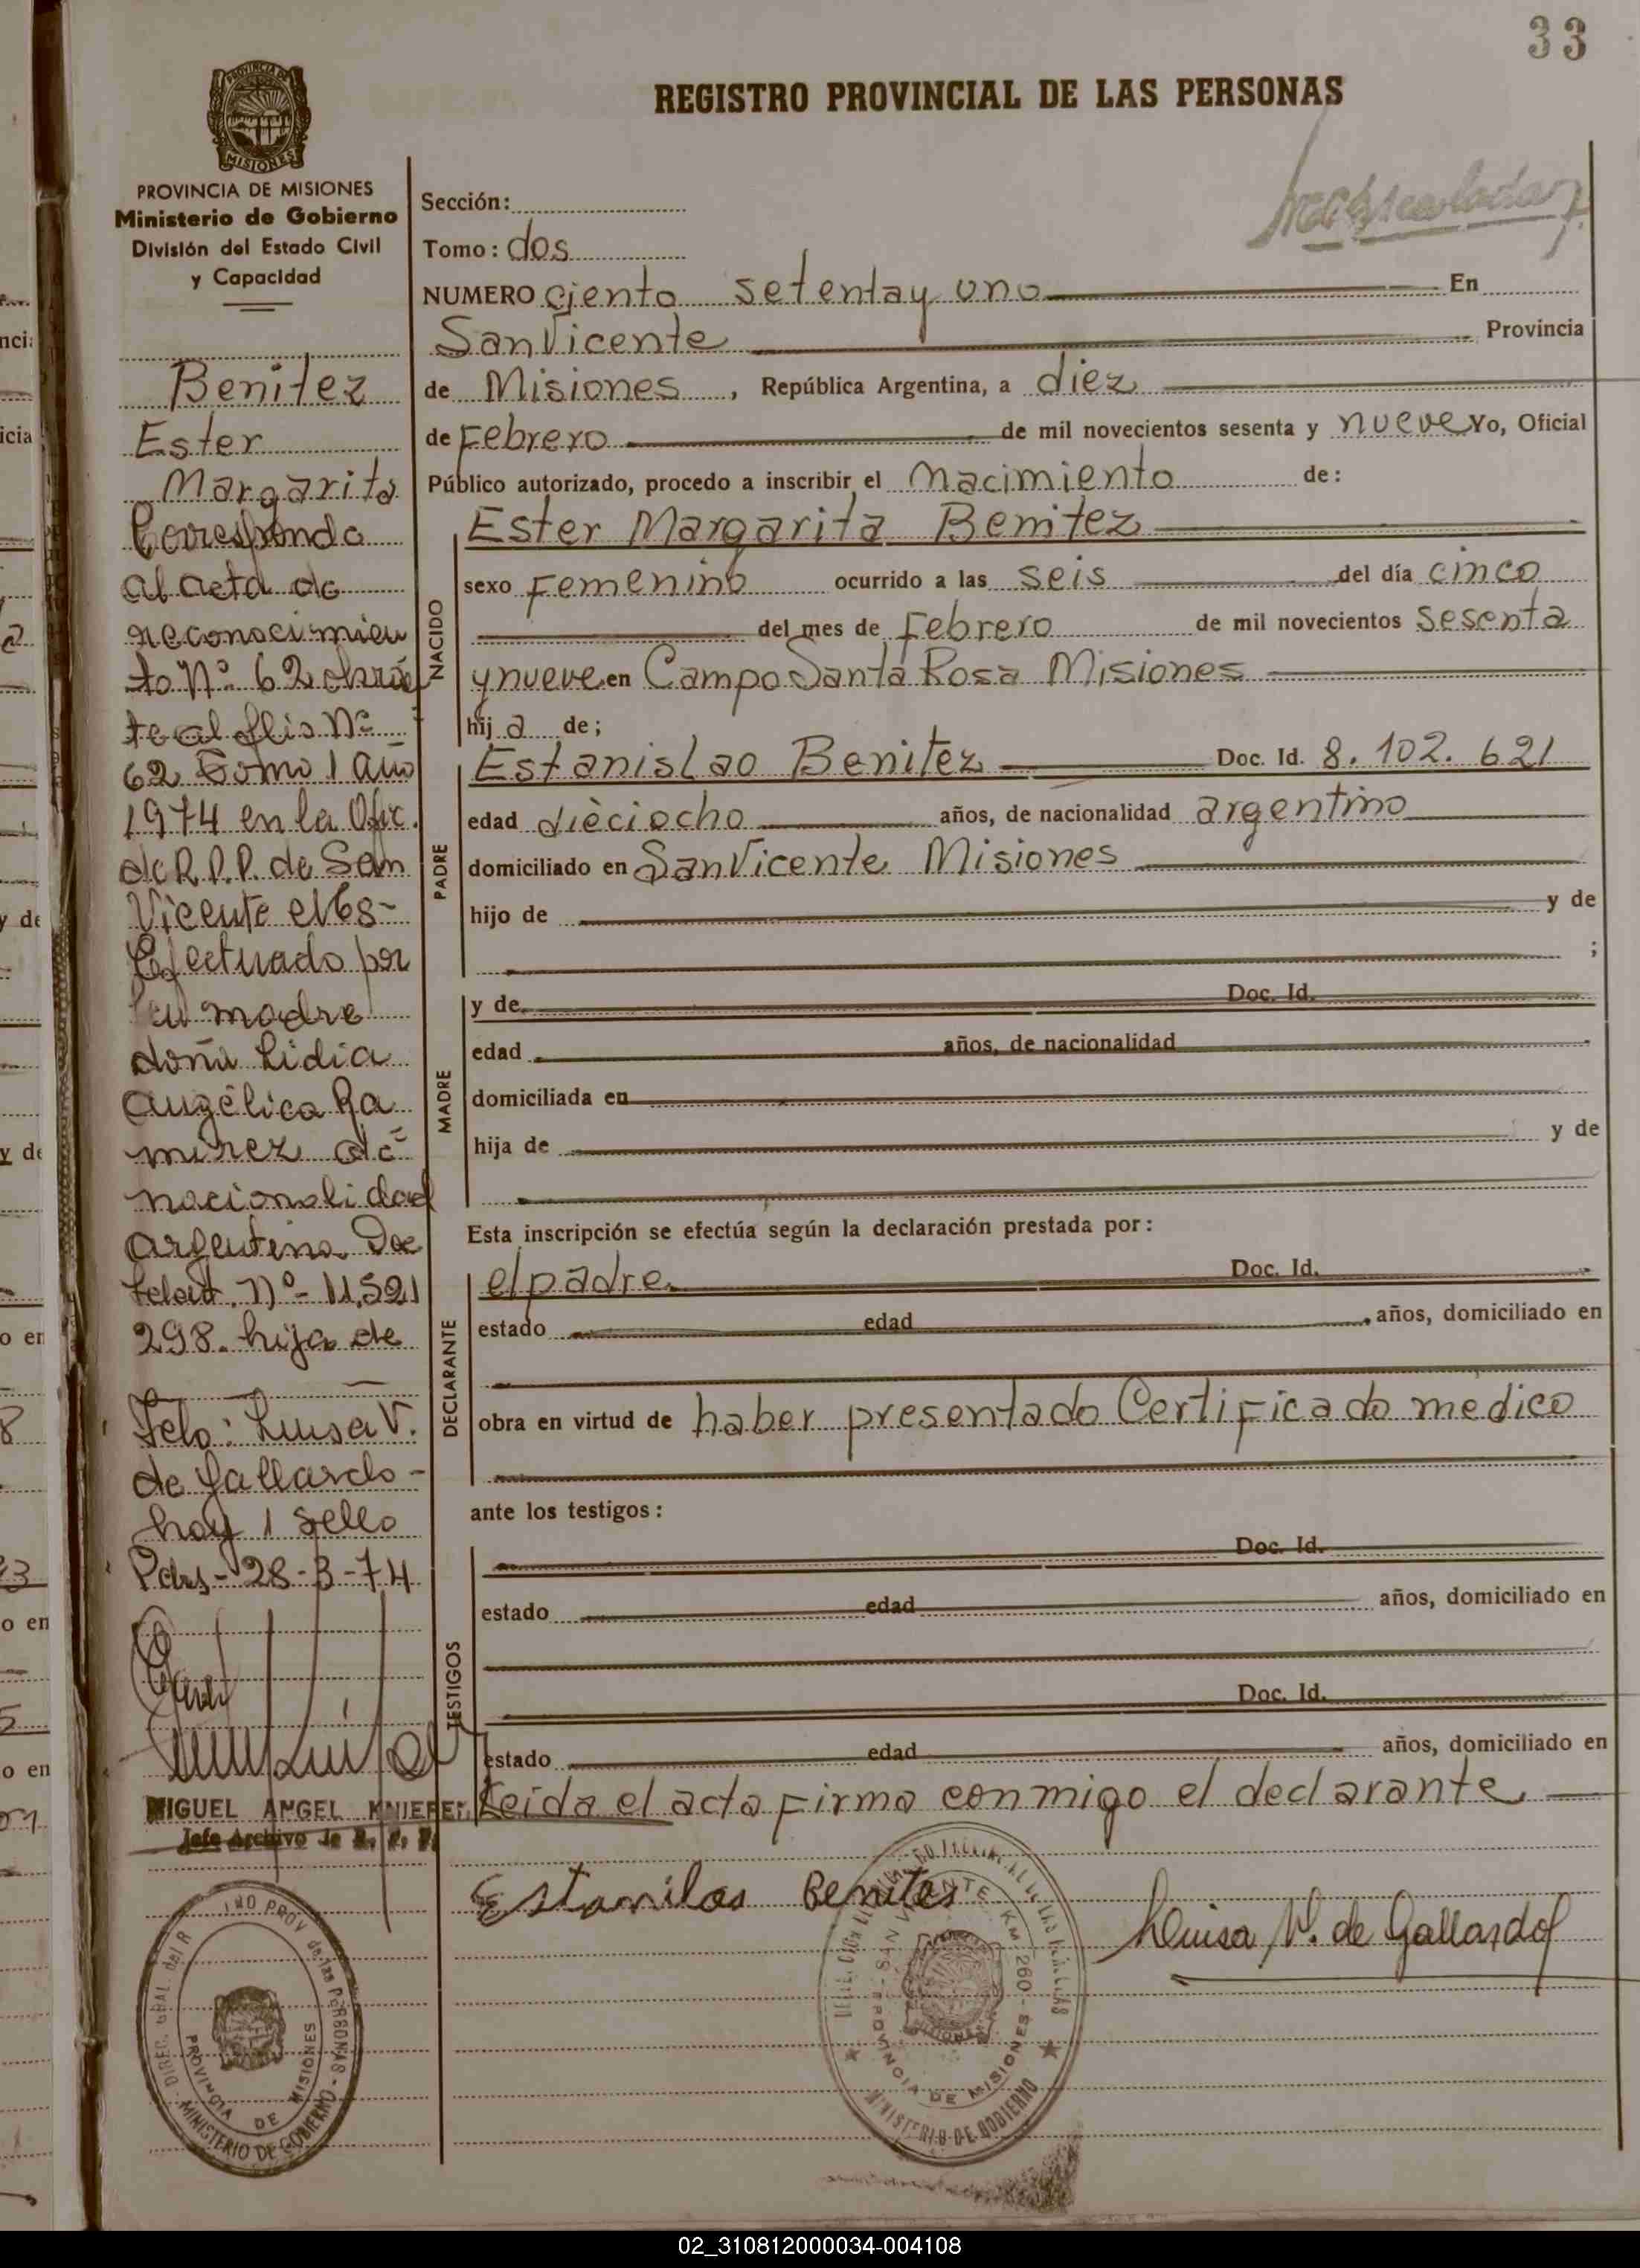 33
REGISTRO PROVINCIAL DE LAS PERSONAS
PROVINCIA DE
MISIONES
PROVINCIA DE MISIONES
Ministerio de Gobierno
División del Estado Civil
y Capacidad
Benitez
Ester
Margarita
Corresponde
al acta de
reconocimien
to Nº 62 obrán
te al flio Nº
62 Tomo 1 año
1974 en la Ofic.
de R.P.P. de San
Vicente
Efectuado por
su madre
doña Lidia
Angélica Ra
mirez de
nacionalidad
Argentina Doc
Ident. Nº 11.521
298. hija de
Fdo: Luisa V.
de Gallardo -
hay 1 sello
Pdas - 28-3-74
MIGUEL ANGEL KNIEPER
Jefe Archivo de R. P. P.
Sección:
Tomo: dos
NUMERO ciento setenta y uno En
San Vicente Provincia
de Misiones, República Argentina, a diez
de Febrero de mil novecientos sesenta y nueve Yo, Oficial
Público autorizado, procedo a inscribir el Nacimiento de:
NACIDO
Ester Margarita Benitez
sexo Femenino ocurrido a las seis del día cinco
del mes de Febrero de mil novecientos sesenta
y nueve en Campo Santa Rosa Misiones
hija de;
PADRE
Estanislao Benitez Doc. Id. 8.102.621
edad dieciocho años, de nacionalidad argentino
domiciliado en San Vicente Misiones
hijo de y de
;
MADRE
y de Doc. Id.
edad años, de nacionalidad
domiciliada en
hija de y de
Esta inscripción se efectúa según la declaración prestada por:
DECLARANTE
el padre Doc. Id.
estado edad años, domiciliado en
obra en virtud de haber presentado Certificado medico
ante los testigos:
TESTIGOS
Doc. Id.
estado edad años, domiciliado en
Doc. Id.
estado edad años, domiciliado en
Leida el acta firma conmigo el declarante
Estanilao Benites
Luisa V. de Gallardo
PROVINCIA DE MISIONES
MINISTERIO DE GOBIERNO
SAN VICENTE KM. 260 - PROVINCIA DE MISIONES
MINISTERIO DE GOBIERNO
02_310812000034-004108